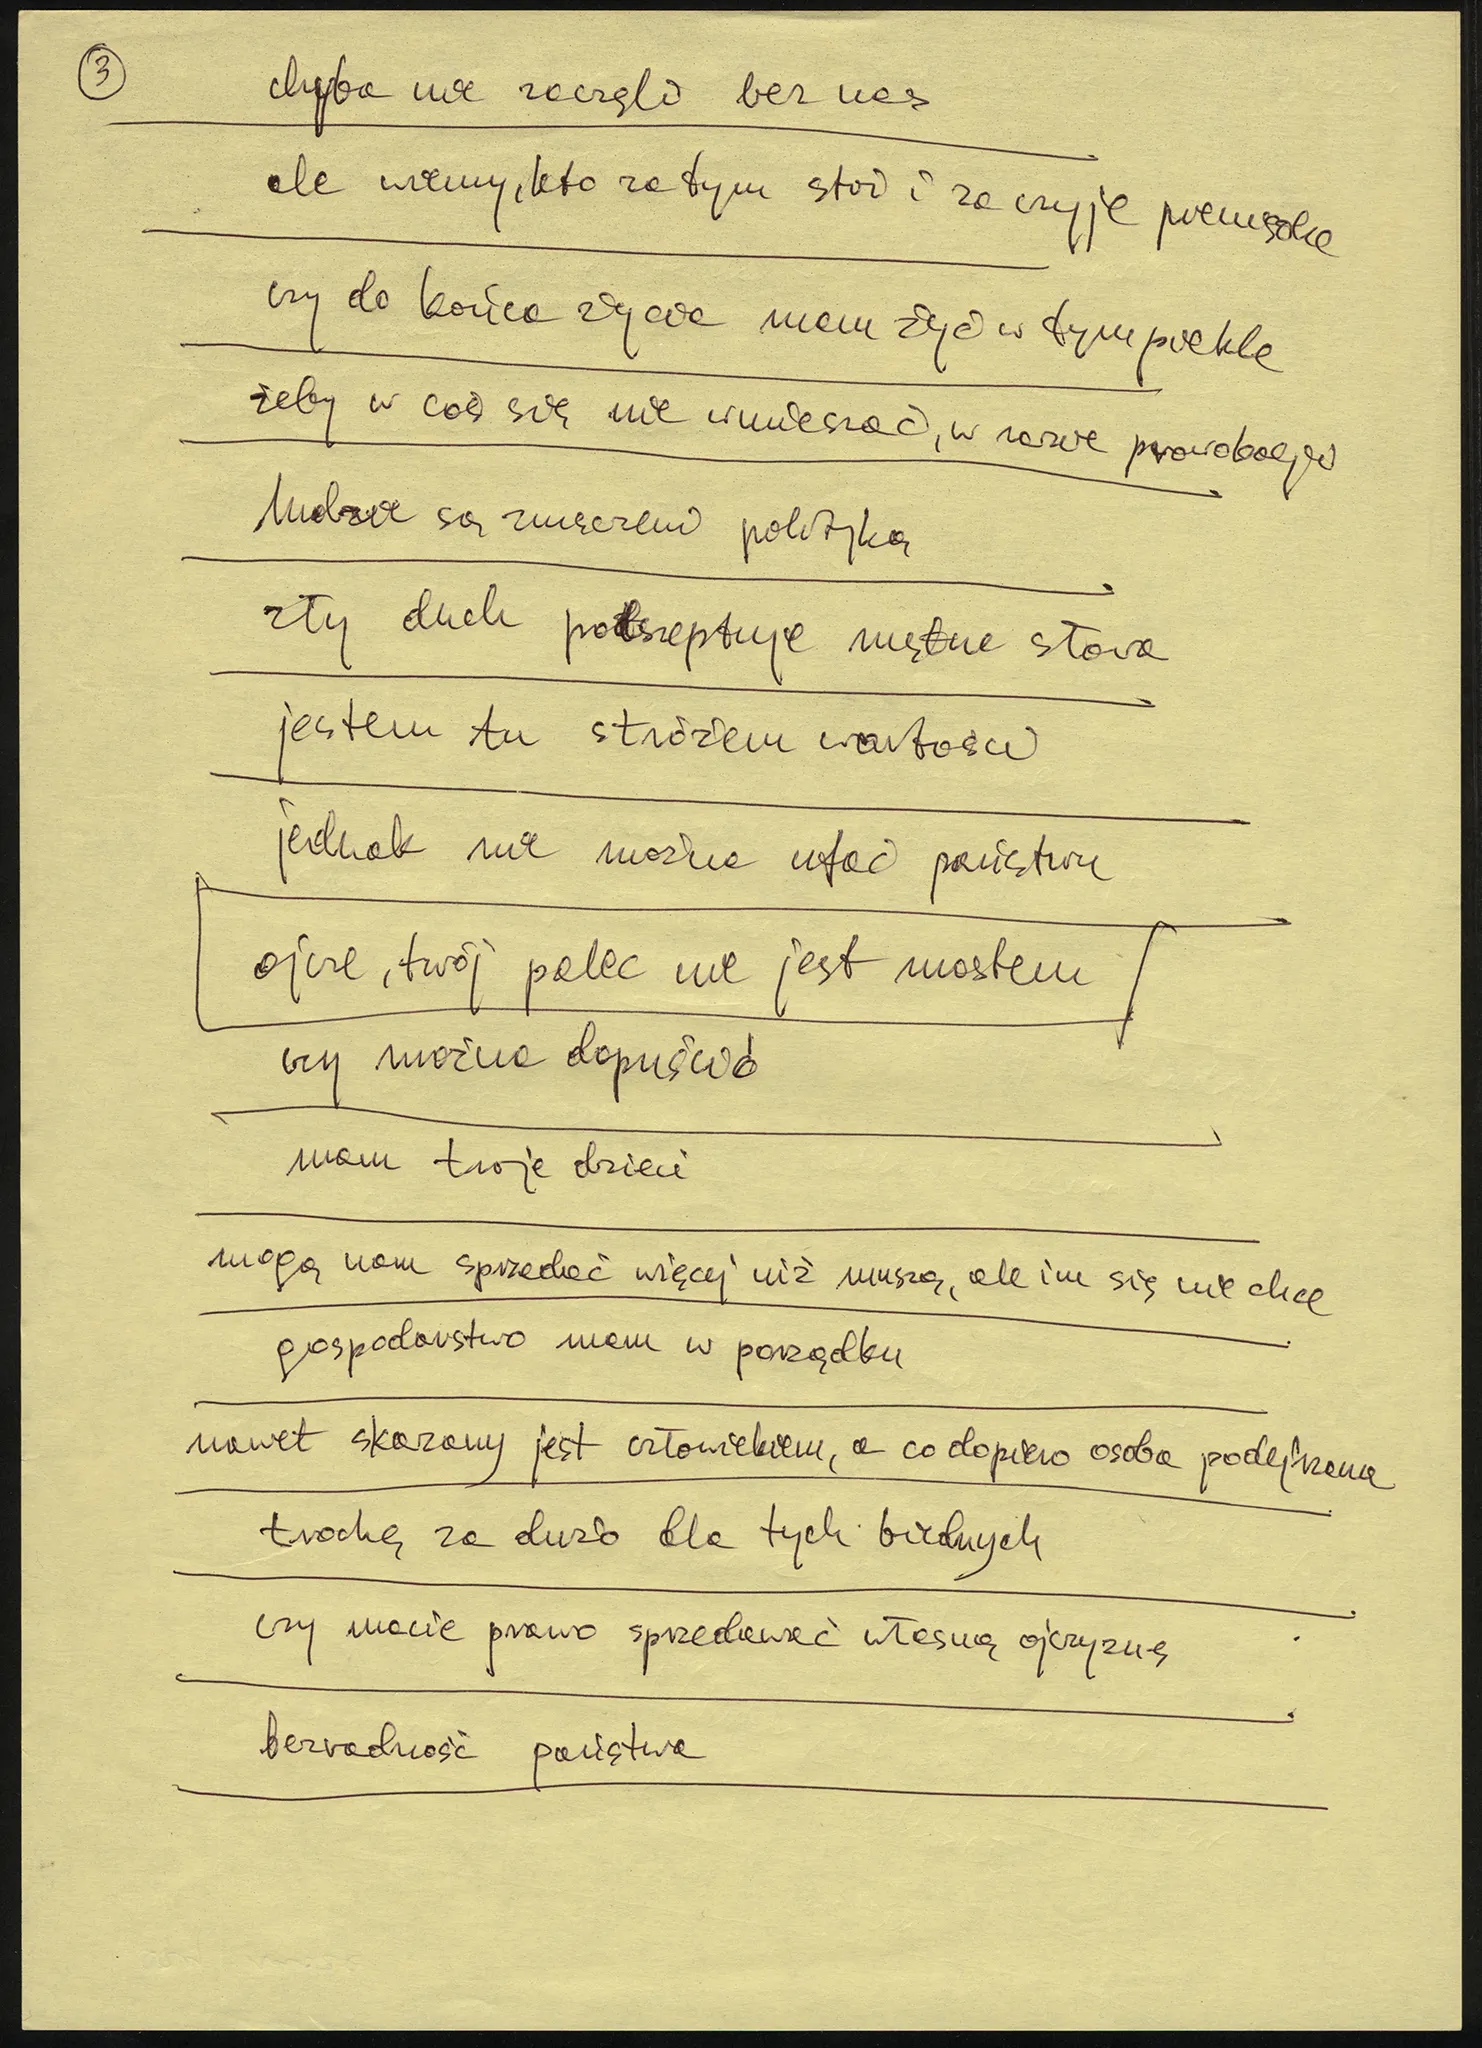 3
chyba nie zaczęli bez nas
ale wiemy, kto za tym stoi i za czyje pieniądze
czy do końca życia mam żyć w tym piekle
żeby w coś się nie wmieszać, w razie prowokacji
ludzie są zmęczeni polityką
zły duch podszeptuje mętne słowa
jestem tu stróżem wartości
jednak nie można ufać państwu
ojcze, twój palec nie jest mostem
czy można dopuścić
mam twoje dzieci
mogą nam sprzedać więcej niż muszą, ale im się nie chce
gospodarstwo mam w porządku
nawet skazany jest człowiekiem, a co dopiero osoba podejrzana
trochę za dużo dla tych biednych
czy macie prawo sprzedawać własną ojczyznę
bezradność państwa